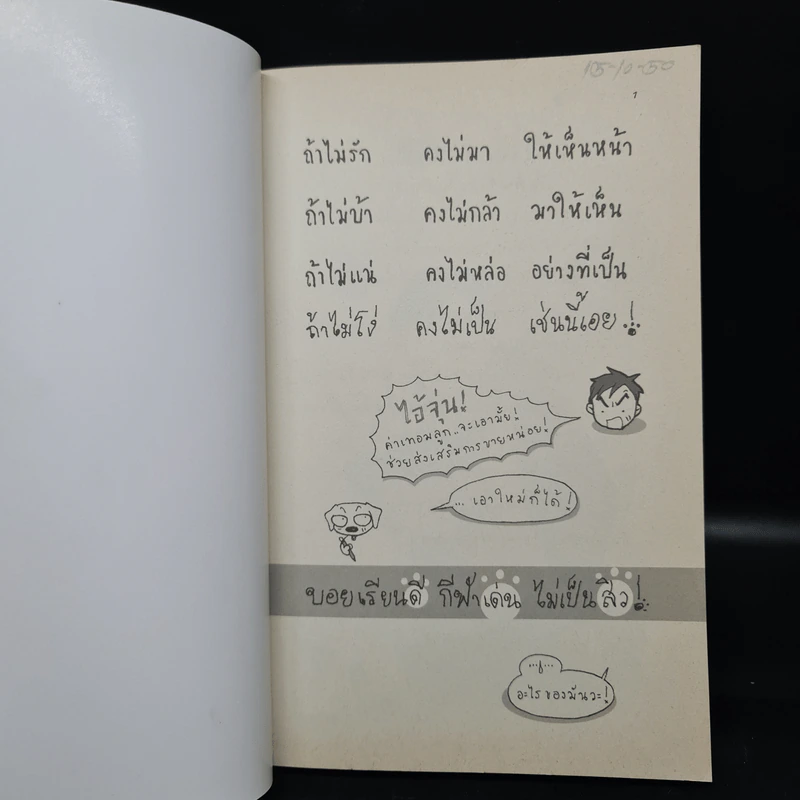 05-10-50
ถ้าไม่รัก คงไม่มา ให้เห็นหน้า
ถ้าไม่บ้า คงไม่กล้า มาให้เห็น
ถ้าไม่แน่ คงไม่หล่อ อย่างที่เป็น
ถ้าไม่โง่ คงไม่เป็น เช่นนี้เอย!
ไอ้จุ่น!
ค่าเทอมลูก..จะเอามั้ย!
ช่วยส่งเสริมการขายหน่อย!
...เอาใหม่ก็ได้!
บอยเรียนดี กีฬาเด่น ไม่เป็นสิว!
อะไรของมันวะ!